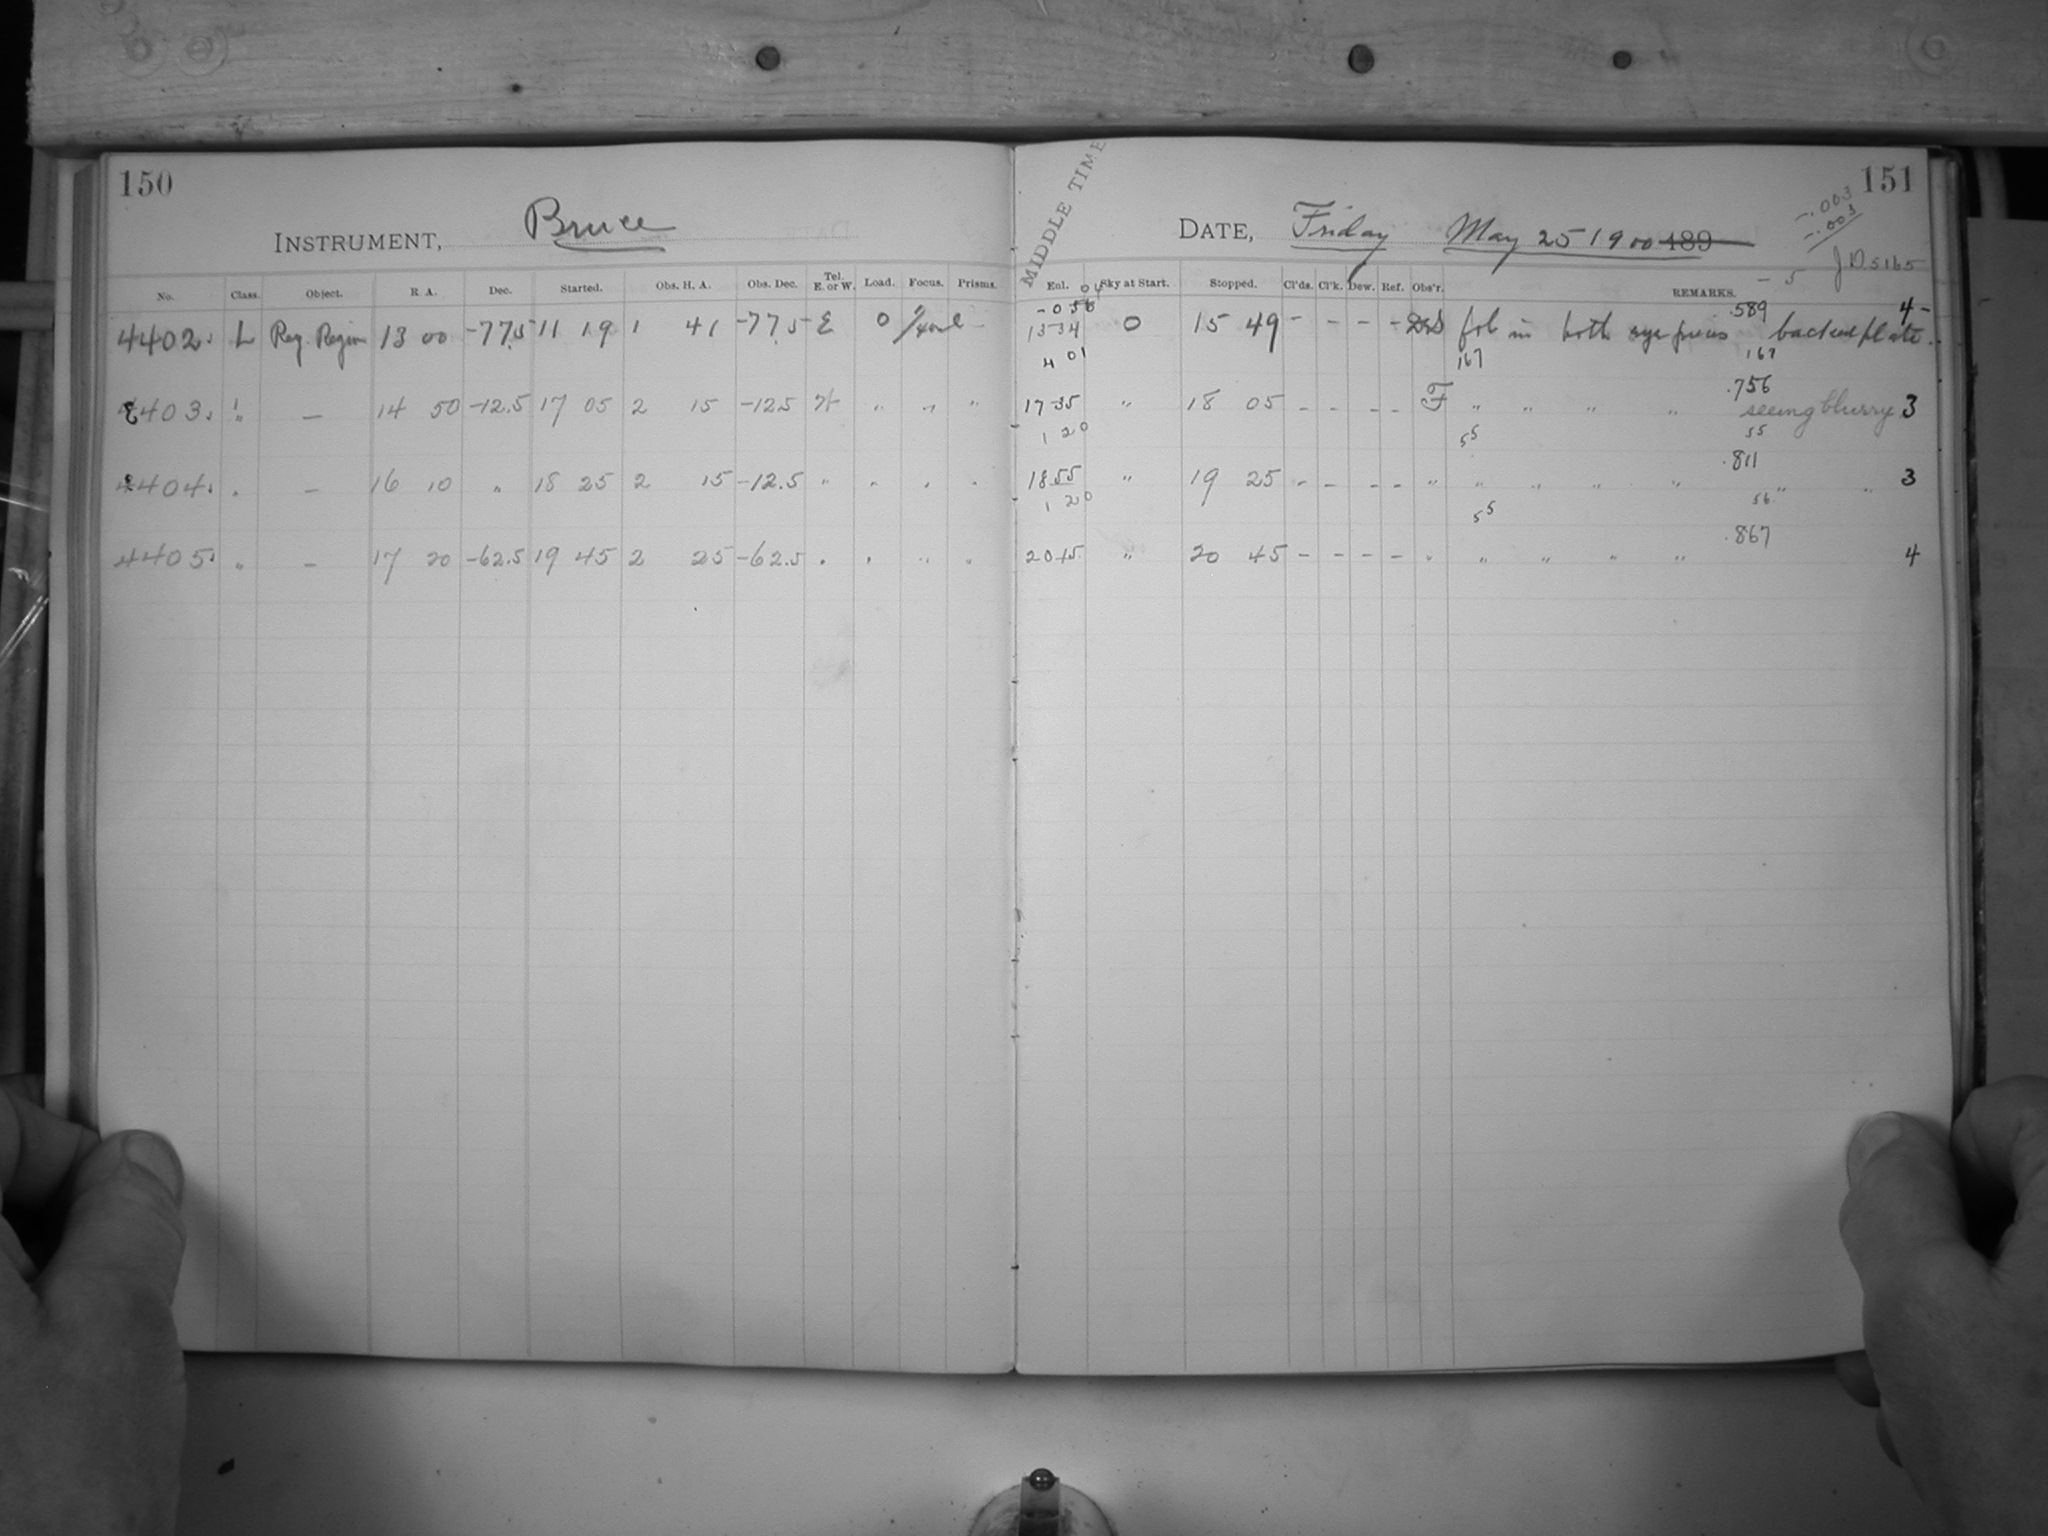 150
INSTRUMENT, Bruce
No. Class. Object. R A. Dec. Started. Obs. H. A. Obs. Dec. Tel. E. or W. Load. Focus. Prisms.
4402. L Reg. Region 13 00 -77.5 11 19 1 41 -77.5 E 0 -
4403. " - 14 50 -12.5 17 05 2 15 -12.5 W " " "
4404. " - 16 10 " 18 25 2 15 -12.5 " " " "
4405. " - 17 20 -62.5 19 45 2 25 -62.5 " " " "
151
MIDDLE TIME
-.003
-.003
DATE, Friday May 25 1900 189
- 5 J D 5165
Enl. Sky at Start. Stopped. Cl'ds. Cl'k. Dew. Ref. Obs'r. REMARKS.
-056 .589 4-
13-34 0 15 49 - - - - fol in both eye pieces backed plate.
4 01 167 167
.756
17-35 " 18 05 - - - - F " " " " seeing blurry 3
1 20 55 55
.811
18 55 " 19 25 - - - - " " " " " " " 3
1 20 55 56
.867
20 15 " 20 45 - - - - " " " " " 4